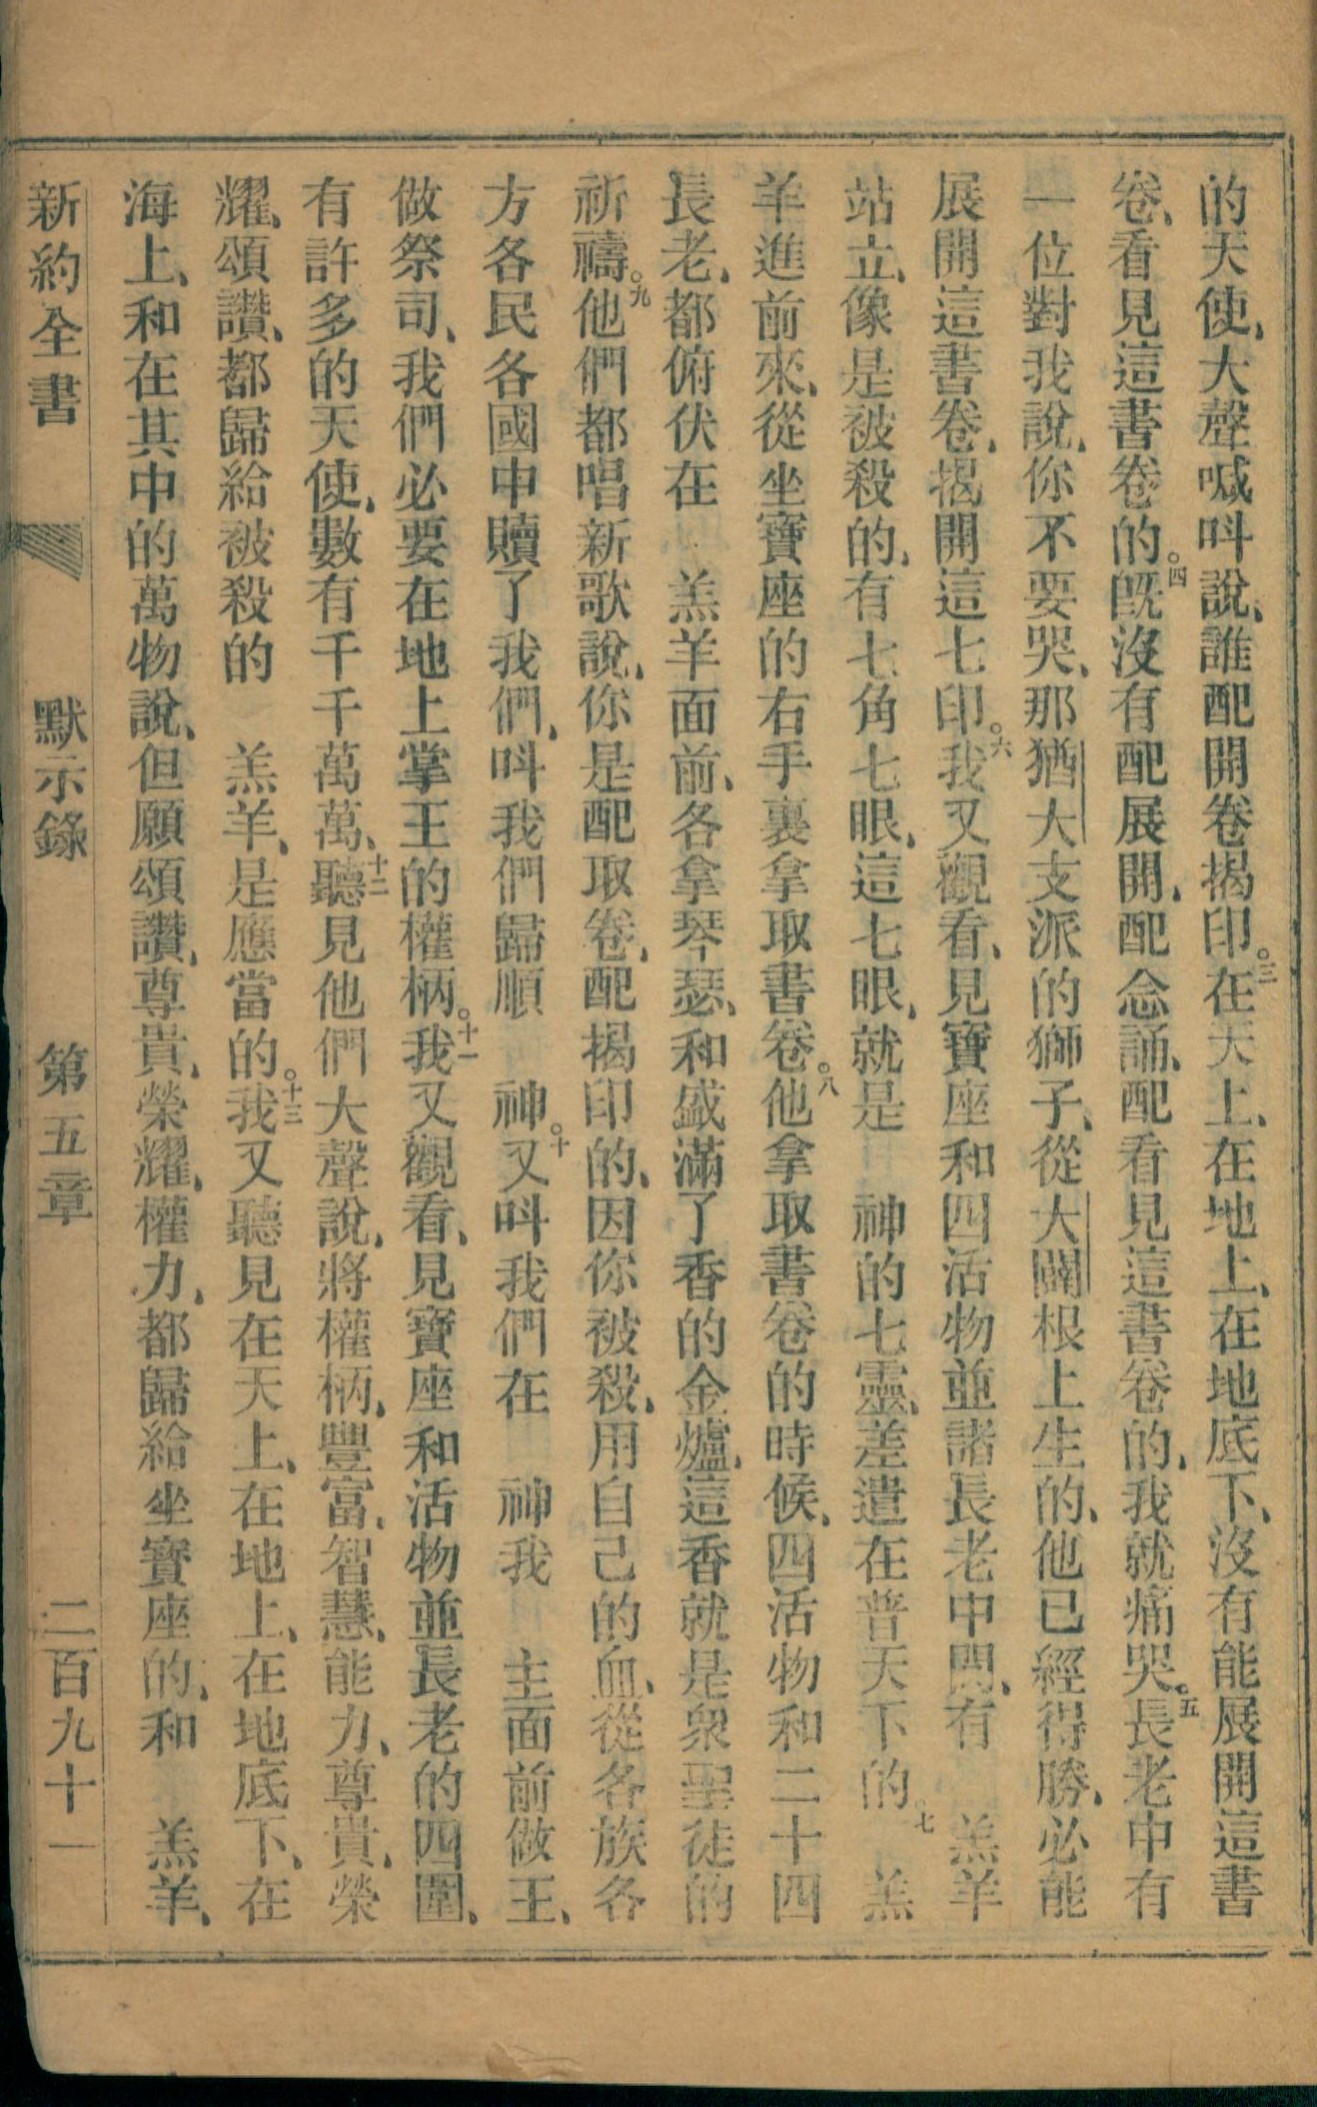 的天使、大聲喊呌說、誰配開卷揭印。三在天上、在地上、在地底下、沒有能展開這書
卷、看見這書卷的。四旣沒有配展開、配念誦、配看見這書卷的、我就痛哭。五長老中有
一位對我說、你不要哭、那猶大支派的獅子、從大闢根上生的、他已經得勝、必能
展開這書卷、揭開這七印。六我又觀看、見寶座和四活物並諸長老中間、有　羔羊
站立、像是被殺的、有七角七眼、這七眼、就是　神的七靈、差遣在普天下的。七　羔
羊進前來、從坐寶座的右手裏拿取書卷。八他拿取書卷的時候、四活物和二十四
長老、都俯伏在　羔羊面前、各拿琴瑟、和盛滿了香的金爐、這香就是衆聖徒的
祈禱。九他們都唱新歌說、你是配取卷、配揭印的、因你被殺、用自己的血、從各族各
方各民各國中贖了我們、呌我們歸順　神。十又呌我們在　神我　主面前做王、
做祭司、我們必要在地上掌王的權柄。十一我又觀看、見寶座和活物並長老的四圍、
有許多的天使、數有千千萬萬、十二聽見他們大聲說、將權柄、豐富、智慧、能力、尊貴、榮
耀、頌讚、都歸給被殺的　羔羊、是應當的。十三我又聽見在天上、在地上、在地底下、在
海上、和在其中的萬物說、但願頌讚、尊貴、榮耀、權力、都歸給坐寶座的、和　羔羊、
新約全書　默示錄　第五章　二百九十一